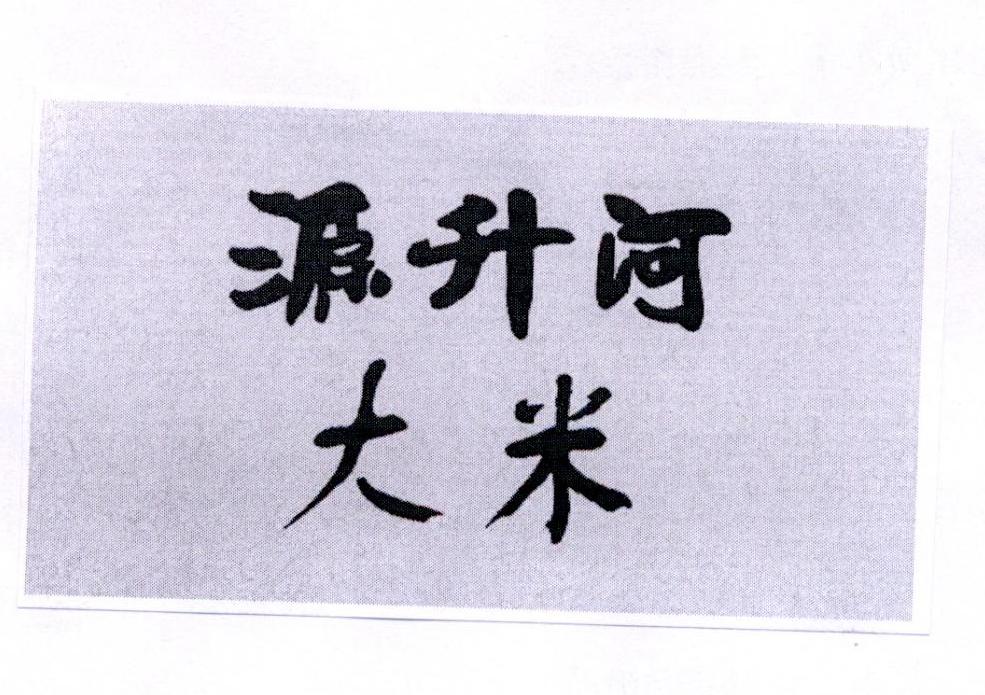 源升河
大米